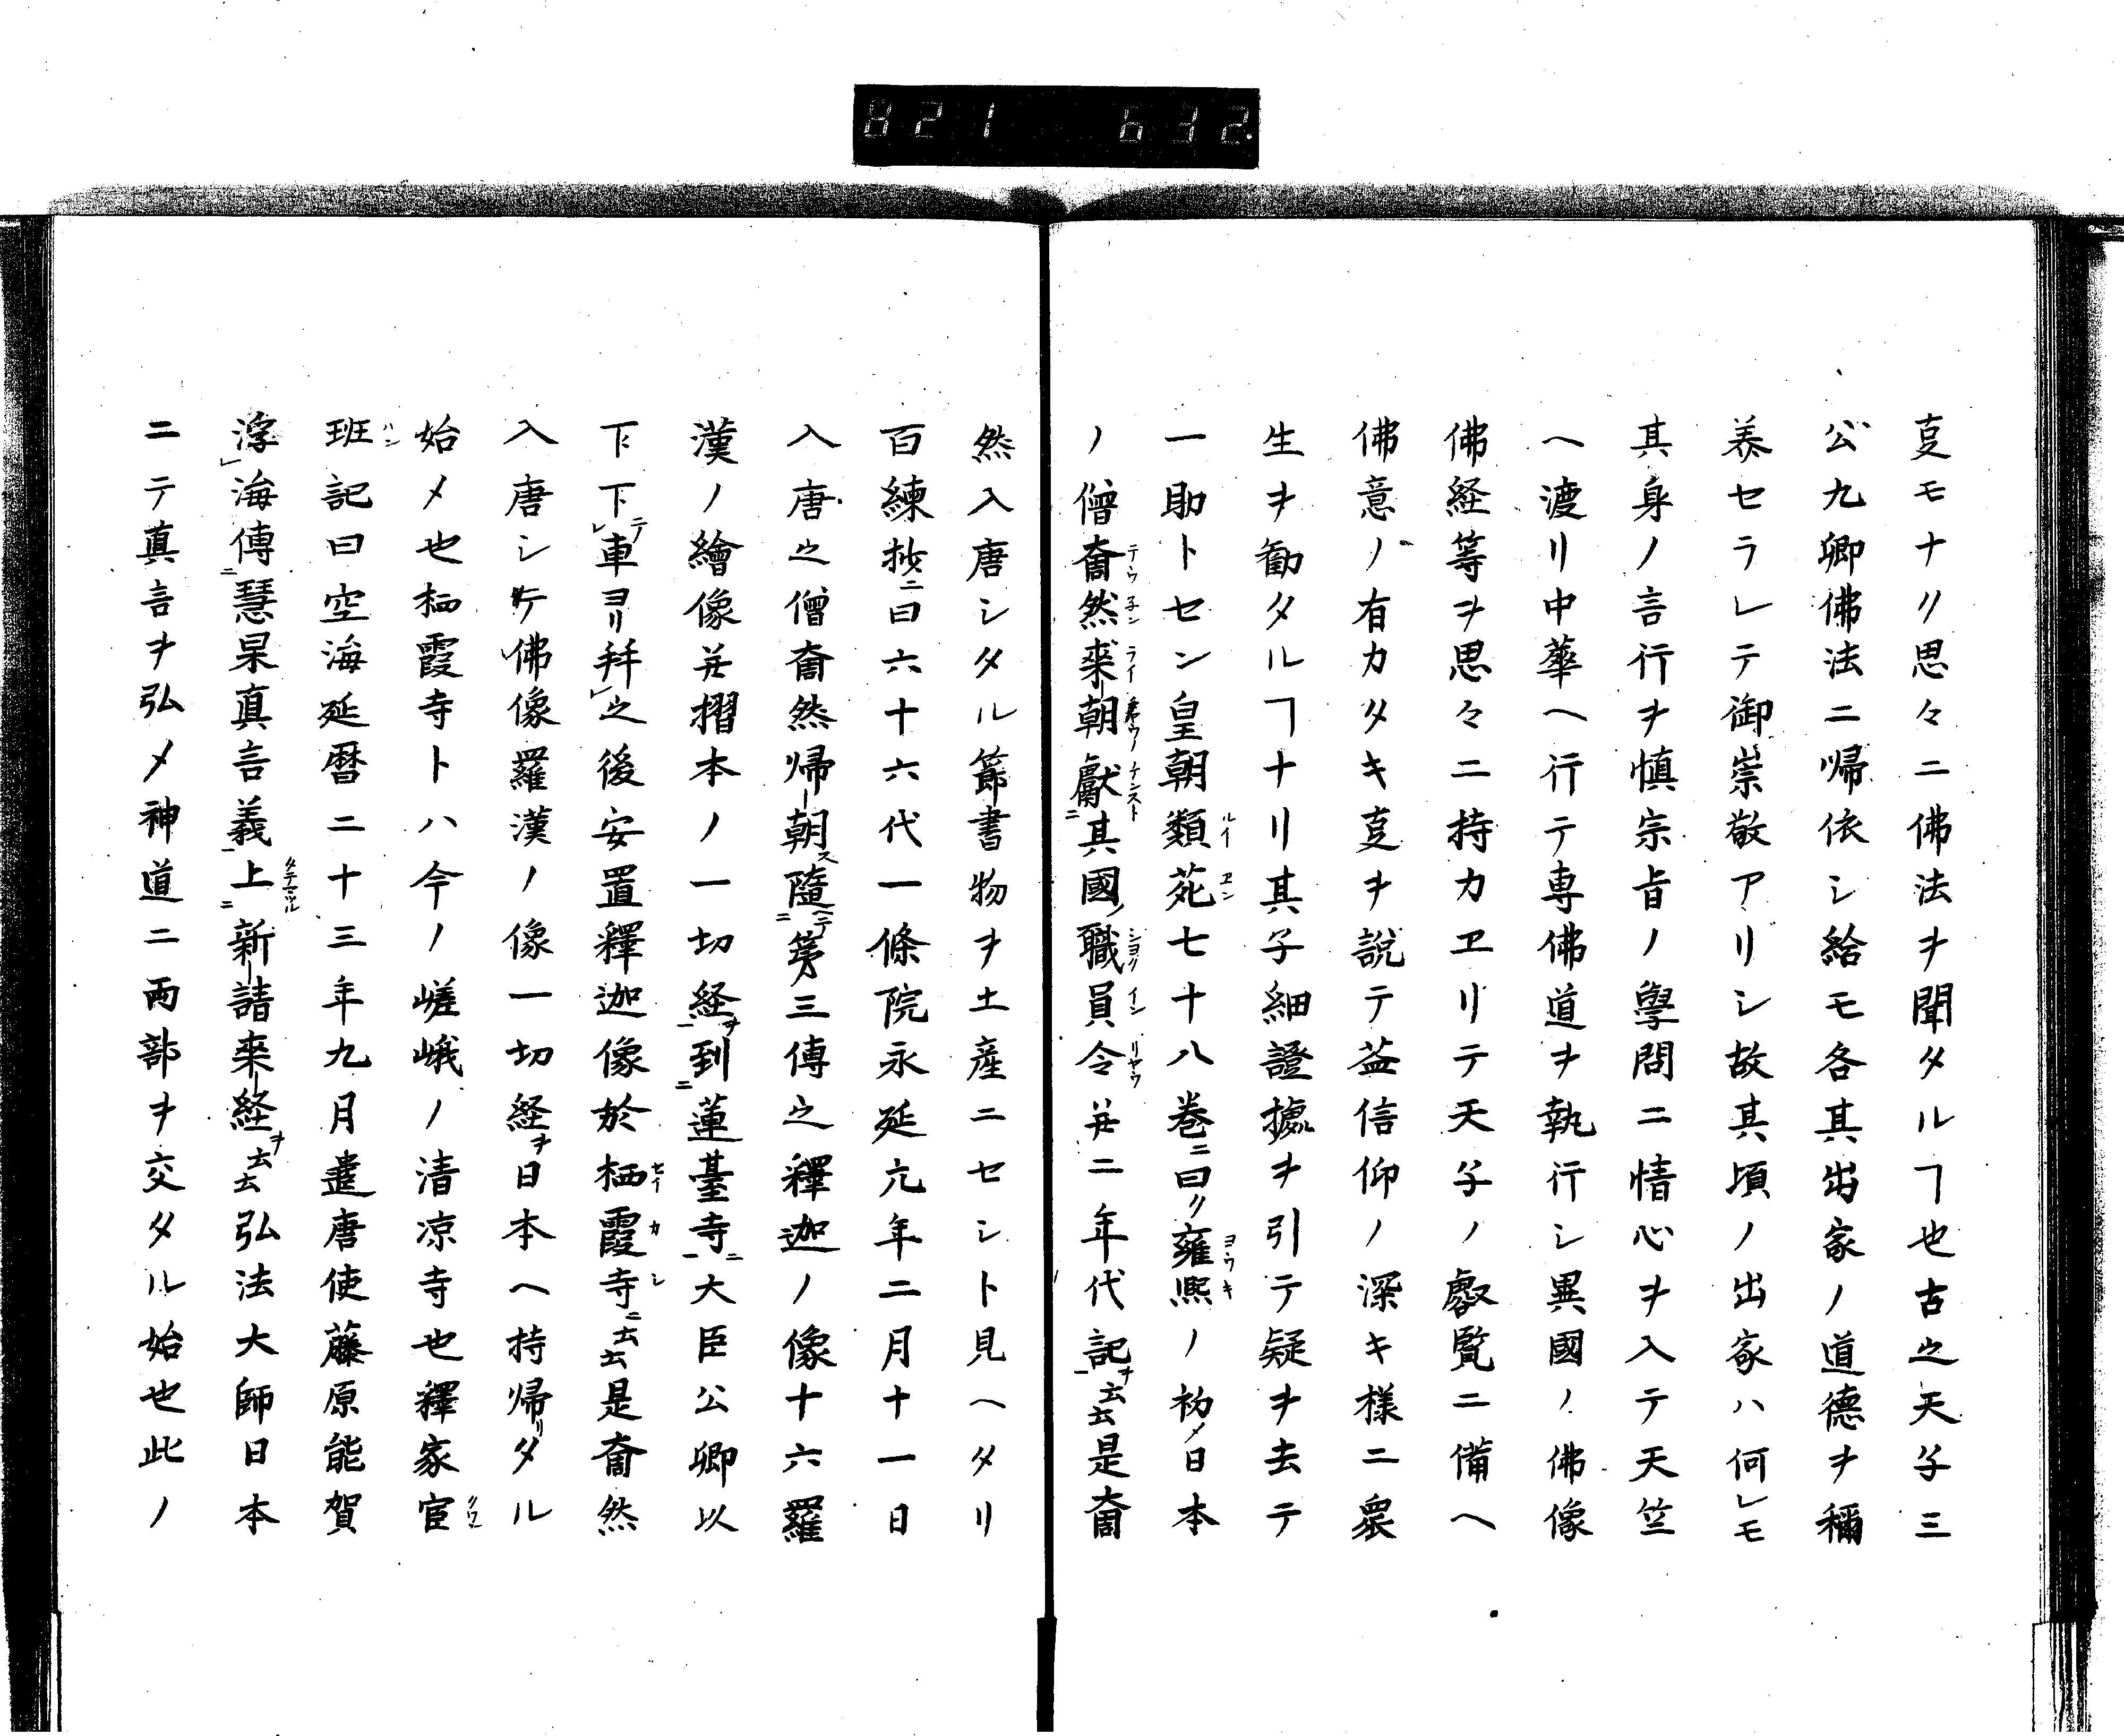 821 632
叓モナリ思々ニ佛法ヲ聞タルヿ也古之天子三
公九卿佛法ニ帰依シ給モ各其出家ノ道德ヲ稱
美セラレテ御崇敬アリシ故其頃ノ出家ハ何レモ
其身ノ言行ヲ慎宗旨ノ學問ニ情心ヲ入テ天竺
ヘ渡リ中華ヘ行テ専佛道ヲ執行シ異國ノ佛像
佛経等ヲ思々ニ持カヱリテ天子ノ叡覧ニ備ヘ
佛意ノ有カタキ叓ヲ説テ益信仰ノ深キ様ニ衆
生ヲ勧タルヿナリ其子細證據ヲ引テ疑ヲ去テ
一助トセン皇朝類苑七十八巻ニ曰ク雍熙ノ初メ日本
ノ僧奝然來朝献其國ノ職員令并二年代記ヲ云云是奝
然入唐シタル節書物ヲ土産ニセシト見ヘタリ
百練抄ニ曰六十六代一條院永延元年二月十一日
入唐之僧奝然帰朝ス隨第三傳之釋迦ノ像十六羅
漢ノ繪像并摺本ノ一切経ヲ到蓮臺寺ニ大臣公卿以
下下車ヨリ拜之後安置釋迦像於栖霞寺ニ云云是奝然
入唐シテ佛像羅漢ノ像一切経ヲ日本ヘ持帰リタル
始メ也栖霞寺トハ今ノ嵯峨ノ清凉寺也釋家官
班記曰空海延暦二十三年九月遣唐使藤原能賀
浮海傳慧杲真言義上新請來経ヲ云云弘法大師日本
ニテ真言ヲ弘メ神道ニ両部ヲ交タル始也此ノ